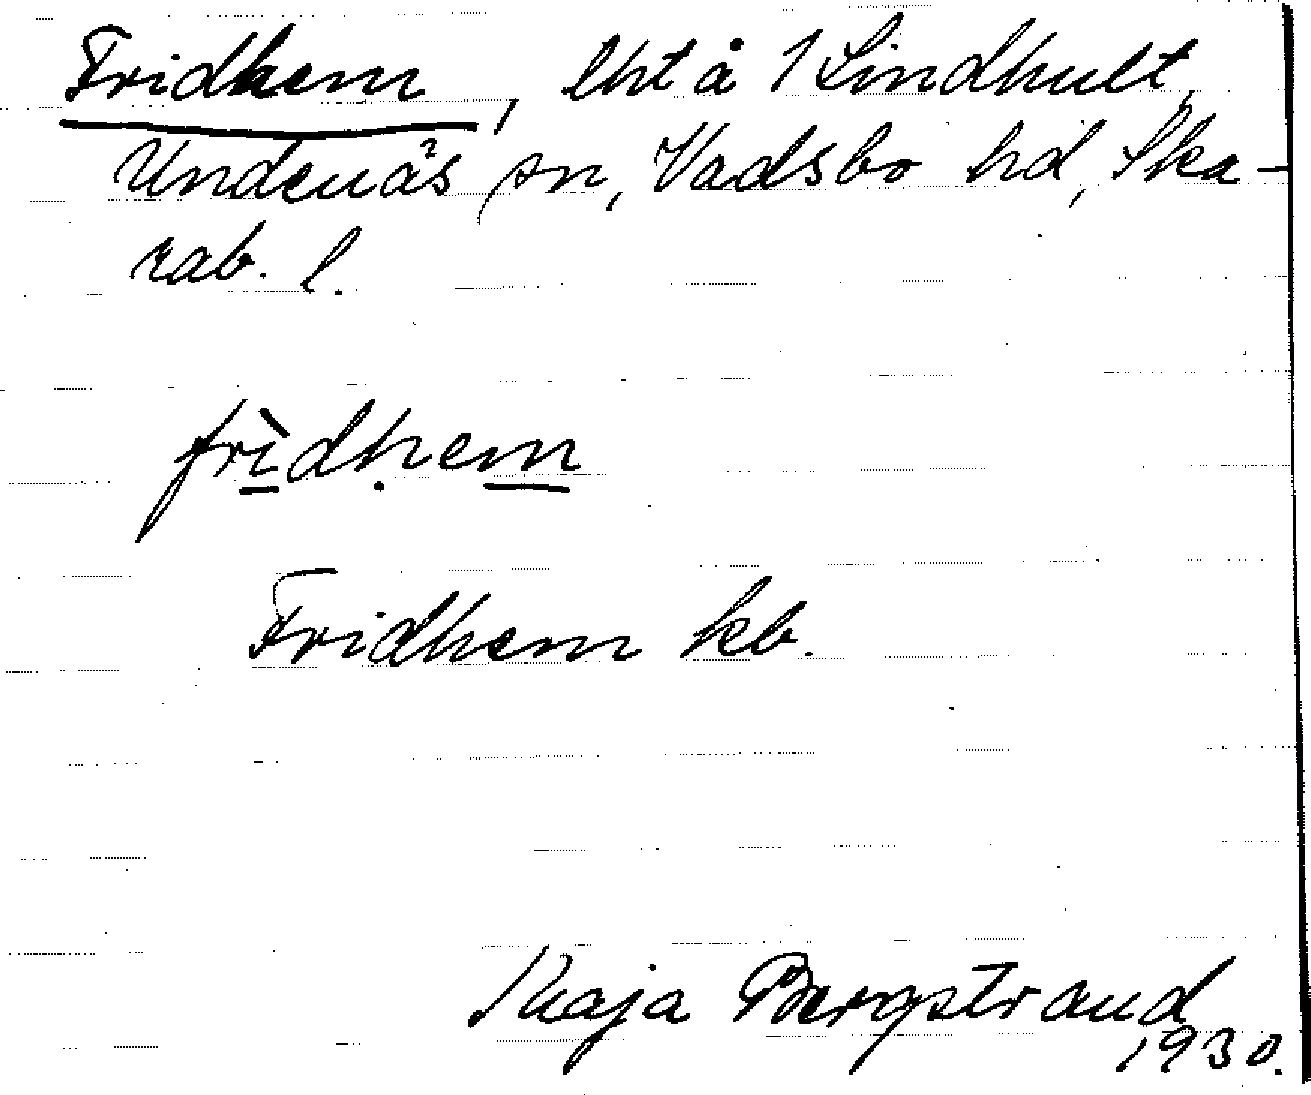 Fridhem, lht å 1 Lindhult,
Undenäs sn, Vadsbo hd, Ska-
rab. l.
frìdhem
Fridhem kb.
Maja Bergstrand
1930.